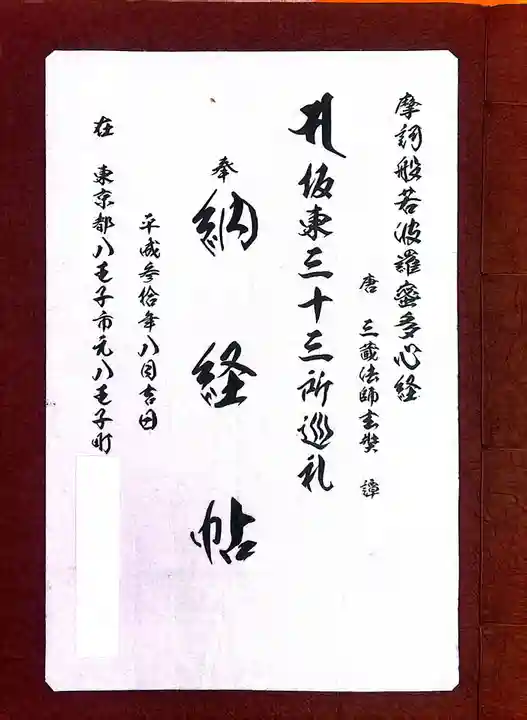 摩訶般若波羅蜜多心経
唐 三蔵法師玄奘 譯
札坂東三十三所巡礼
奉 納経帖
平成参拾年八月吉日
在 東京都八王子市元八王子町